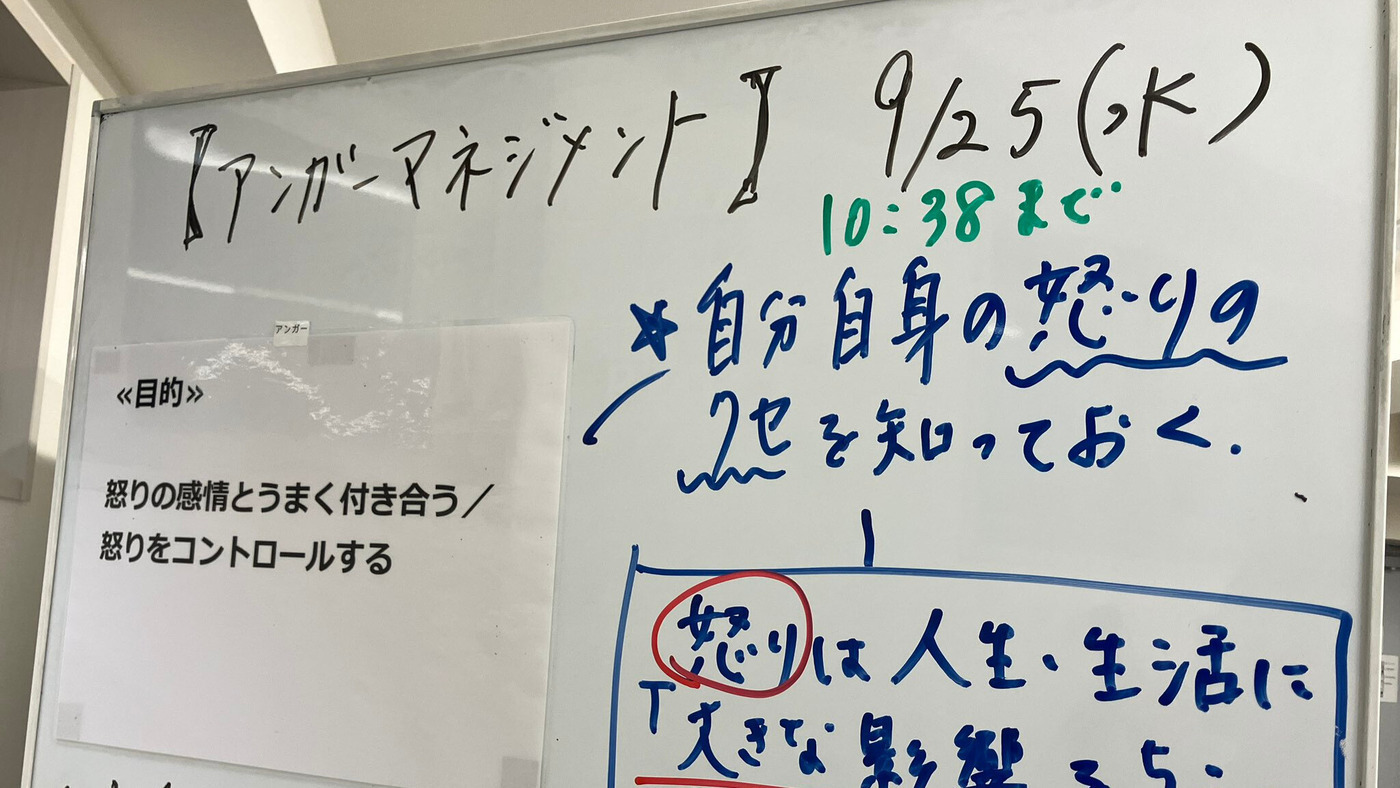 【アンガーマネジメント】 9/25(水)
10:38まで
アンガー
≪目的≫
怒りの感情とうまく付き合う／
怒りをコントロールする
★自分自身の怒りの
クセを知っておく.
怒りは人生・生活に
「大きな影響